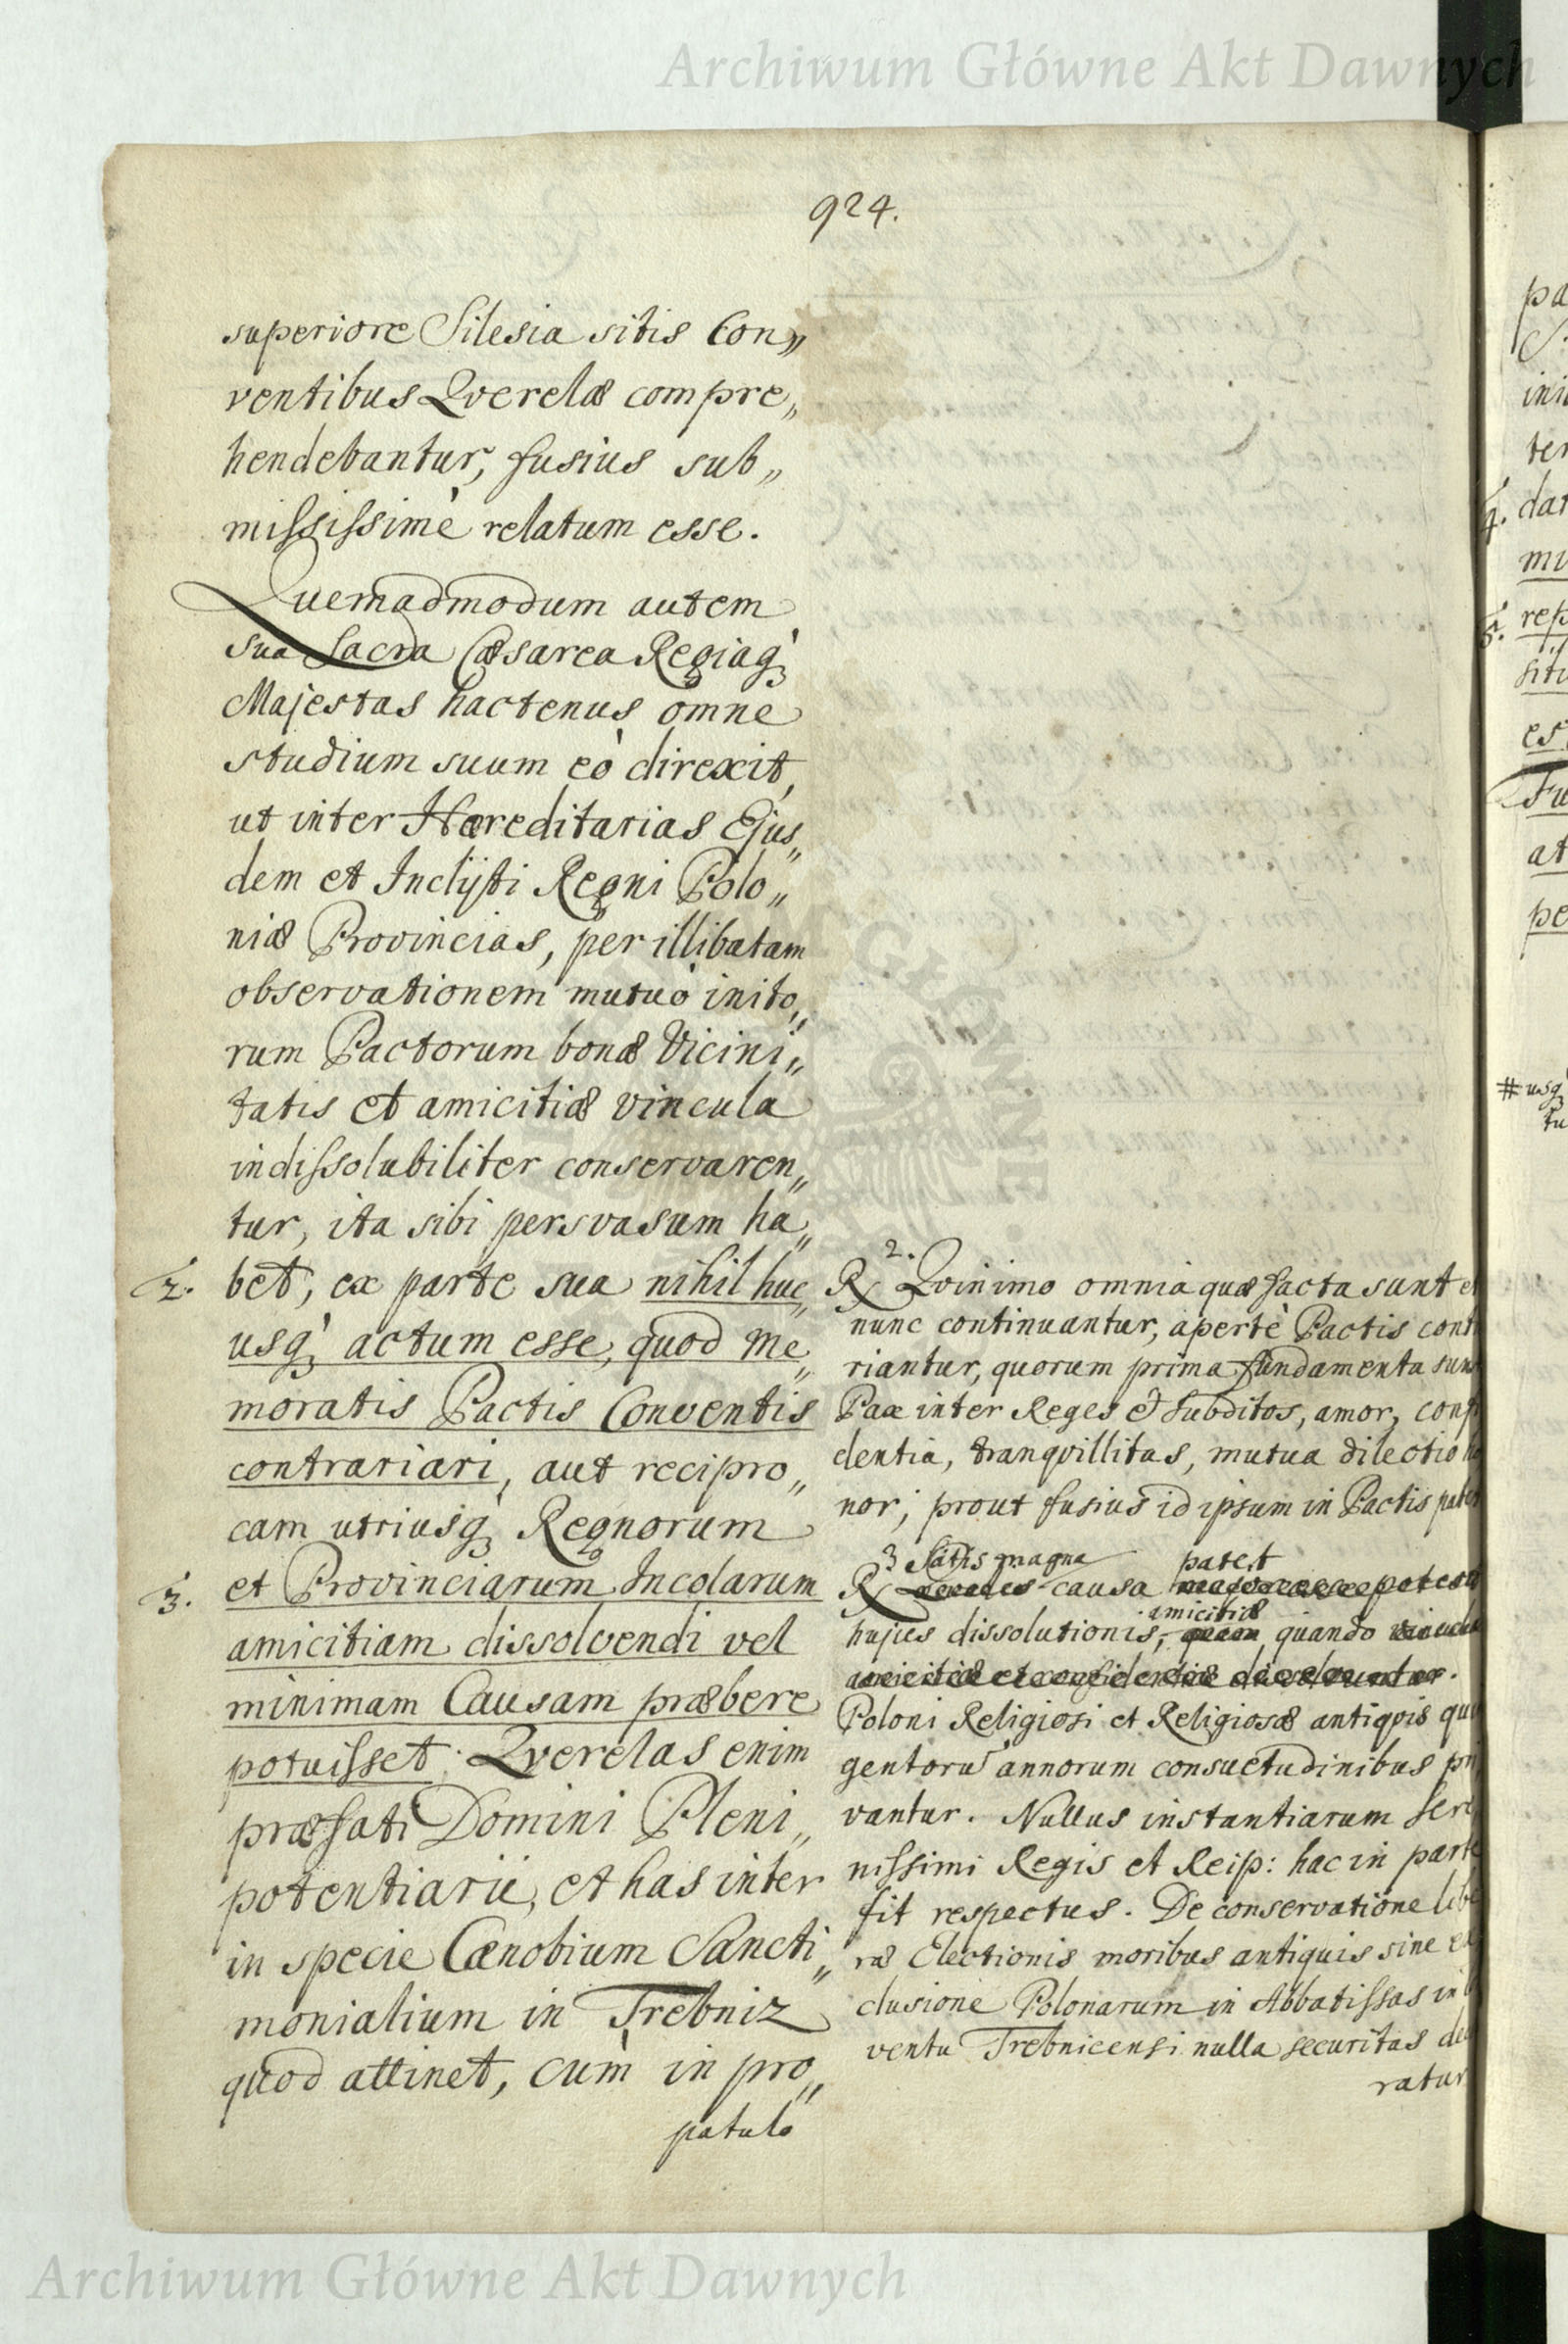 Archiwum Główne Akt Dawnych
924.
superiore Silesia sitis Con„
ventibus Qverelæ compre„
hendebantur, fusius sub„
missisimè relatum esse.
Quemadmodum autem
sua Sacra Cæsarea Regiaq́
Majestas hactenus omne
studium suum eò direxit,
ut inter Hæreditarias Ejus„
dem et Inclÿti Regni Polo„
niæ Provincias, per illibatam
observationem mutuò inito„
rum Pactorum bonæ Vicini„
tatis et amicitiæ vincula
indissolubiliter conservaren„
tur, ita sibi persvasum ha„
2. bet, ex parte sua nihil huc„
usq́ actum esse, quod me„
moratis Pactis Conventis
contrariari, aut recipro„
cam utriusq́ Regnorum
3. et Provinciarum Incolarum
amicitiam dissolvendi vel
minimam Causam præbere
potuisset. Qverelas enim
præfati Domini Pleni„
potentiarii, et has inter
in specie Cænobium Sancti„
monialium in Trebniz
quod attinet, cùm in pro„
patulo
2.
R Qvinimo omnia quæ facta sunt et
nunc continuantur, apertè Pactis cont
riantur, quorum prima fundamenta sun
Pax inter Reges et Subditos, amor, conf
dentia, tranqvillitas, mutua dilectio ho
nor; prout fusius id ipsum in Pactis pate
3 Satis magna patet
R causa
amicitiæ
hujus dissolutionis, quando
amicitiæ et confidentiæ dissolvuntur.
Poloni Religiosi et Religiosæ antiqvis qui
gentorū annorum consuetudinibus pri
vantur. Nullus instantiarum Sere
nissimi Regis et Reip: hac in parte
fit respectus. De conservatione libe
ræ Electionis moribus antiquis sine ex
clusione Polonarum in Abbatissas in
ventu Trebnicensi nulla securitas de
ratur
pa
ini
ter
4. dar
mu
5. rep
situ
es
Fu
at
pe
# usq́
tu
Archiwum Główne Akt Dawnych